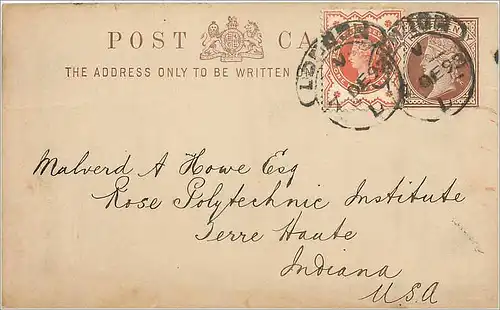 POST CA
THE ADDRESS ONLY TO BE WRITTEN
LONDON
DE 93
Malverd A Howe Esq
Rose Polytechnic Institute
Terre Haute
Indiana
U.S.A